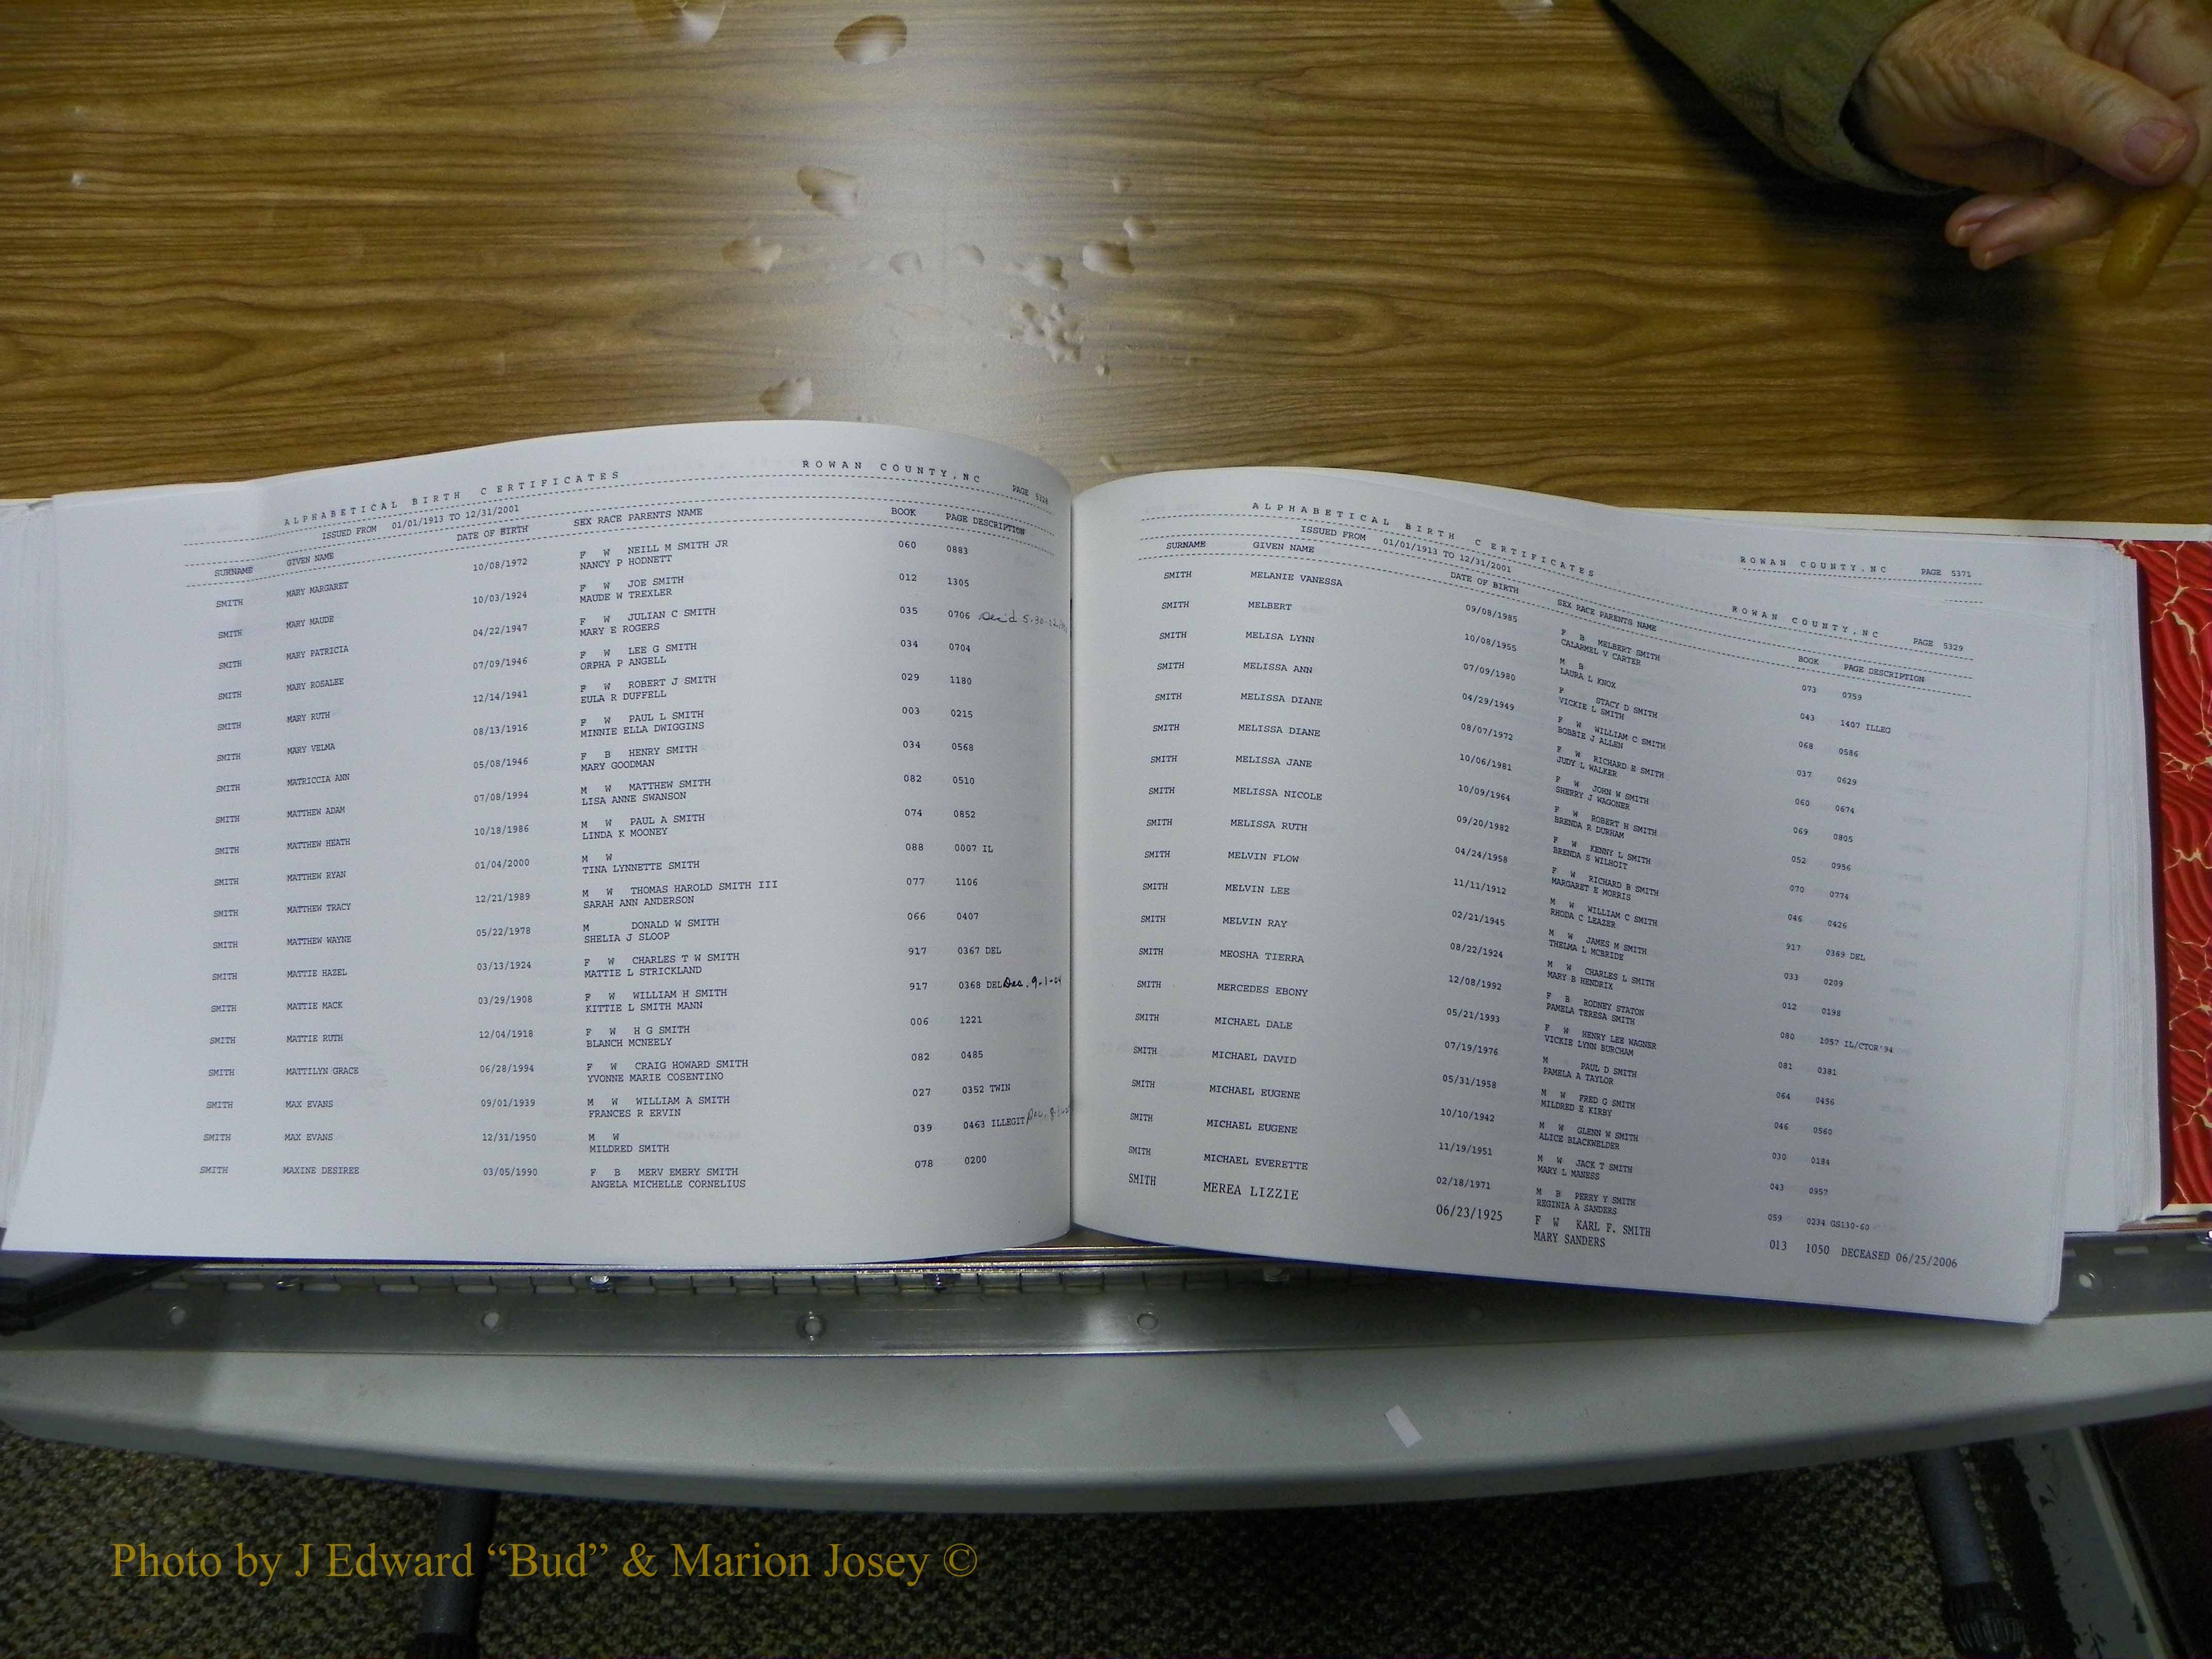 ALPHABETICAL BIRTH CERTIFICATES ROWAN COUNTY,NC PAGE 5328
ISSUED FROM 01/01/1913 TO 12/31/2001
SURNAME GIVEN NAME DATE OF BIRTH SEX RACE PARENTS NAME BOOK PAGE DESCRIPTION
SMITH MARY MARGARET 10/08/1972 F W NEILL M SMITH JR 060 0883
NANCY P HODNETT
SMITH MARY MAUDE 10/03/1924 F W JOE SMITH 012 1305
MAUDE W TREXLER
SMITH MARY PATRICIA 04/22/1947 F W JULIAN C SMITH 035 0706 Dec'd 5-30-
MARY E ROGERS
SMITH MARY ROSALEE 07/09/1946 F W LEE G SMITH 034 0704
ORPHA P ANGELL
SMITH MARY RUTH 12/14/1941 F W ROBERT J SMITH 029 1180
EULA R DUFFELL
SMITH MARY VELMA 08/13/1916 F W PAUL L SMITH 003 0215
MINNIE ELLA DWIGGINS
SMITH MATRICCIA ANN 05/08/1946 F B HENRY SMITH 034 0568
MARY GOODMAN
SMITH MATTHEW ADAM 07/08/1994 M W MATTHEW SMITH 082 0510
LISA ANNE SWANSON
SMITH MATTHEW HEATH 10/18/1986 M W PAUL A SMITH 074 0852
LINDA K MOONEY
SMITH MATTHEW RYAN 01/04/2000 M W 088 0007 IL
TINA LYNNETTE SMITH
SMITH MATTHEW TRACY 12/21/1989 M W THOMAS HAROLD SMITH III 077 1106
SARAH ANN ANDERSON
SMITH MATTHEW WAYNE 05/22/1978 M DONALD W SMITH 066 0407
SHELIA J SLOOP
SMITH MATTIE HAZEL 03/13/1924 F W CHARLES T W SMITH 917 0367 DEL
MATTIE L STRICKLAND
SMITH MATTIE MACK 03/29/1908 F W WILLIAM H SMITH 917 0368 DEL Dec. 9-1-04
KITTIE L SMITH MANN
SMITH MATTIE RUTH 12/04/1918 F W H G SMITH 006 1221
BLANCH MCNEELY
SMITH MATTILYN GRACE 06/28/1994 F W CRAIG HOWARD SMITH 082 0485
YVONNE MARIE COSENTINO
SMITH MAX EVANS 09/01/1939 M W WILLIAM A SMITH 027 0352 TWIN
FRANCES R ERVIN
SMITH MAX EVANS 12/31/1950 M W 039 0463 ILLEGIT
MILDRED SMITH
SMITH MAXINE DESIREE 03/05/1990 F B MERV EMERY SMITH 078 0200
ANGELA MICHELLE CORNELIUS
ROWAN COUNTY,NC PAGE 5371
ALPHABETICAL BIRTH CERTIFICATES ROWAN COUNTY,NC PAGE 5329
ISSUED FROM 01/01/1913 TO 12/31/2001
SURNAME GIVEN NAME DATE OF BIRTH SEX RACE PARENTS NAME BOOK PAGE DESCRIPTION
SMITH MELANIE VANESSA 09/08/1985 F B MELBERT SMITH 073 0759
CALARMEL V CARTER
SMITH MELBERT 10/08/1955 M B 043 1407 ILLEG
LAURA L KNOX
SMITH MELISA LYNN 07/09/1980 F STACY D SMITH 068 0586
VICKIE L SMITH
SMITH MELISSA ANN 04/29/1949 F W WILLIAM C SMITH 037 0629
BOBBIE J ALLEN
SMITH MELISSA DIANE 08/07/1972 F W RICHARD E SMITH 060 0674
JUDY L WALKER
SMITH MELISSA DIANE 10/06/1981 F W JOHN W SMITH 069 0805
SHERRY J WAGONER
SMITH MELISSA JANE 10/09/1964 F W ROBERT H SMITH 052 0956
BRENDA R DURHAM
SMITH MELISSA NICOLE 09/20/1982 F W KENNY L SMITH 070 0774
BRENDA S WILHOIT
SMITH MELISSA RUTH 04/24/1958 F W RICHARD B SMITH 046 0426
MARGARET E MORRIS
SMITH MELVIN FLOW 11/11/1912 M W WILLIAM C SMITH 917 0369 DEL
RHODA C LEAZER
SMITH MELVIN LEE 02/21/1945 M W JAMES M SMITH 033 0209
THELMA L MCBRIDE
SMITH MELVIN RAY 08/22/1924 M W CHARLES L SMITH 012 0198
MARY B HENDRIX
SMITH MEOSHA TIERRA 12/08/1992 F B RODNEY STATON 080 1057 IL/CTOR'94
PAMELA TERESA SMITH
SMITH MERCEDES EBONY 05/21/1993 F W HENRY LEE WAGNER 081 0381
VICKIE LYNN BURCHAM
SMITH MICHAEL DALE 07/19/1976 M PAUL D SMITH 064 0456
PAMELA A TAYLOR
SMITH MICHAEL DAVID 05/31/1958 M W FRED G SMITH 046 0560
MILDRED E KIRBY
SMITH MICHAEL EUGENE 10/10/1942 M W GLENN W SMITH 030 0184
ALICE BLACKWELDER
SMITH MICHAEL EUGENE 11/19/1951 M W JACK T SMITH 043 0957
MARY L MANESS
SMITH MICHAEL EVERETTE 02/18/1971 M B PERRY Y SMITH 059 0234 GS130-60
REGINIA A SANDERS
SMITH MEREA LIZZIE 06/23/1925 F W KARL F. SMITH 013 1050 DECEASED 06/25/2006
MARY SANDERS
Photo by J Edward “Bud” & Marion Josey ©